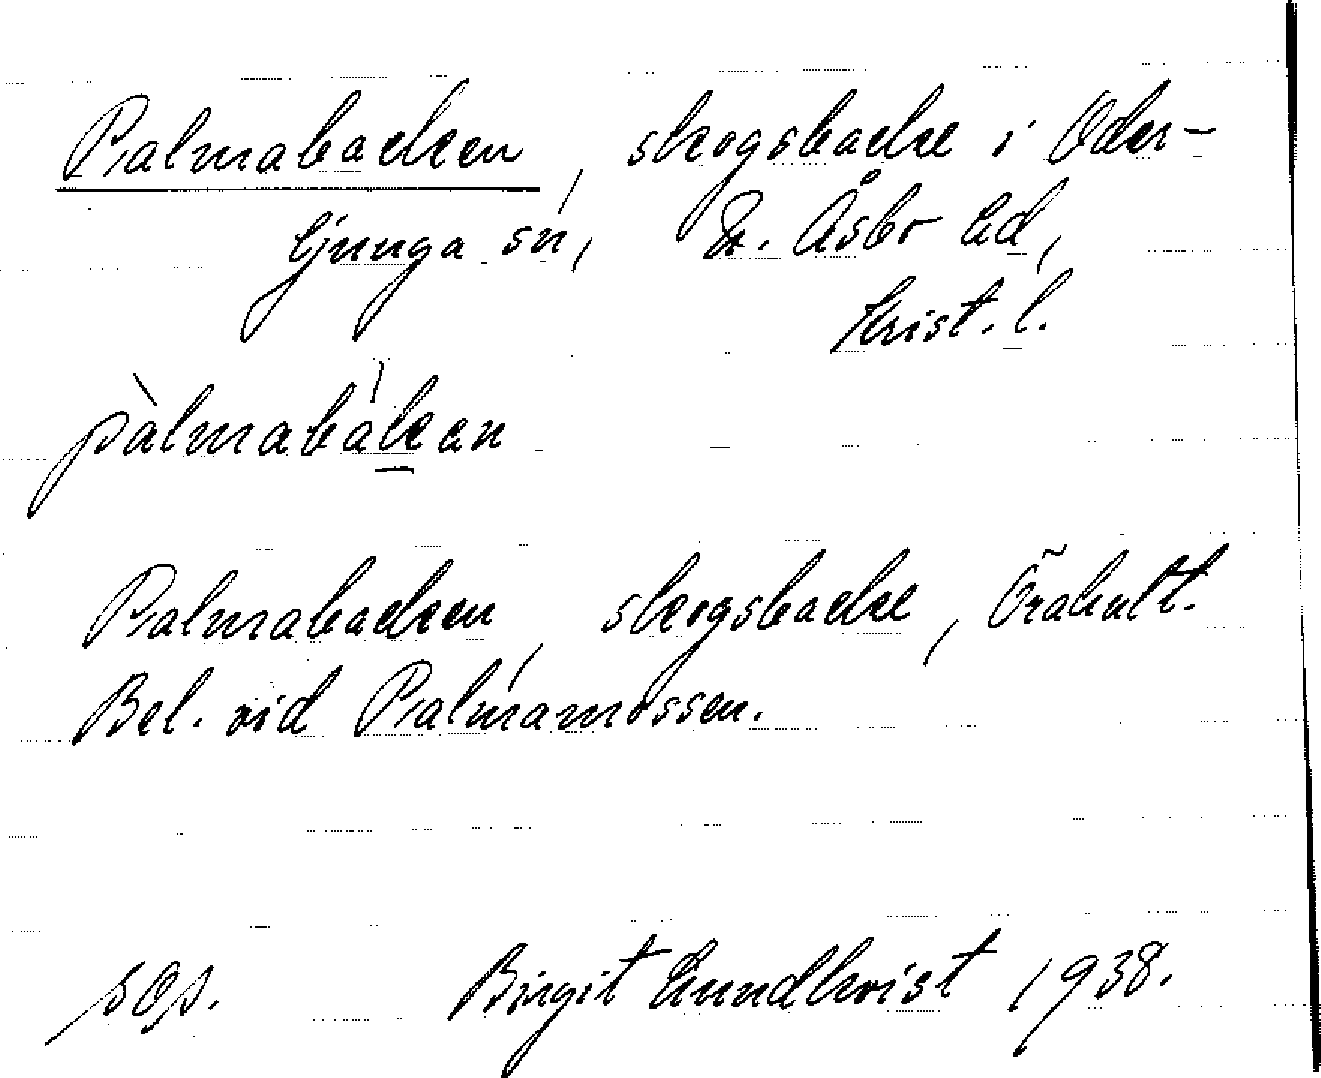 Palmabacken, skogsbacke i Oder-
ljunga sn, N. Åsbo hd,
Krist. l.
pàlmabàkan
Palmabacken, skogsbacke, Örahult.
Bel. vid Palmamossen.
sOs. Birgit Lundkvist 1938.